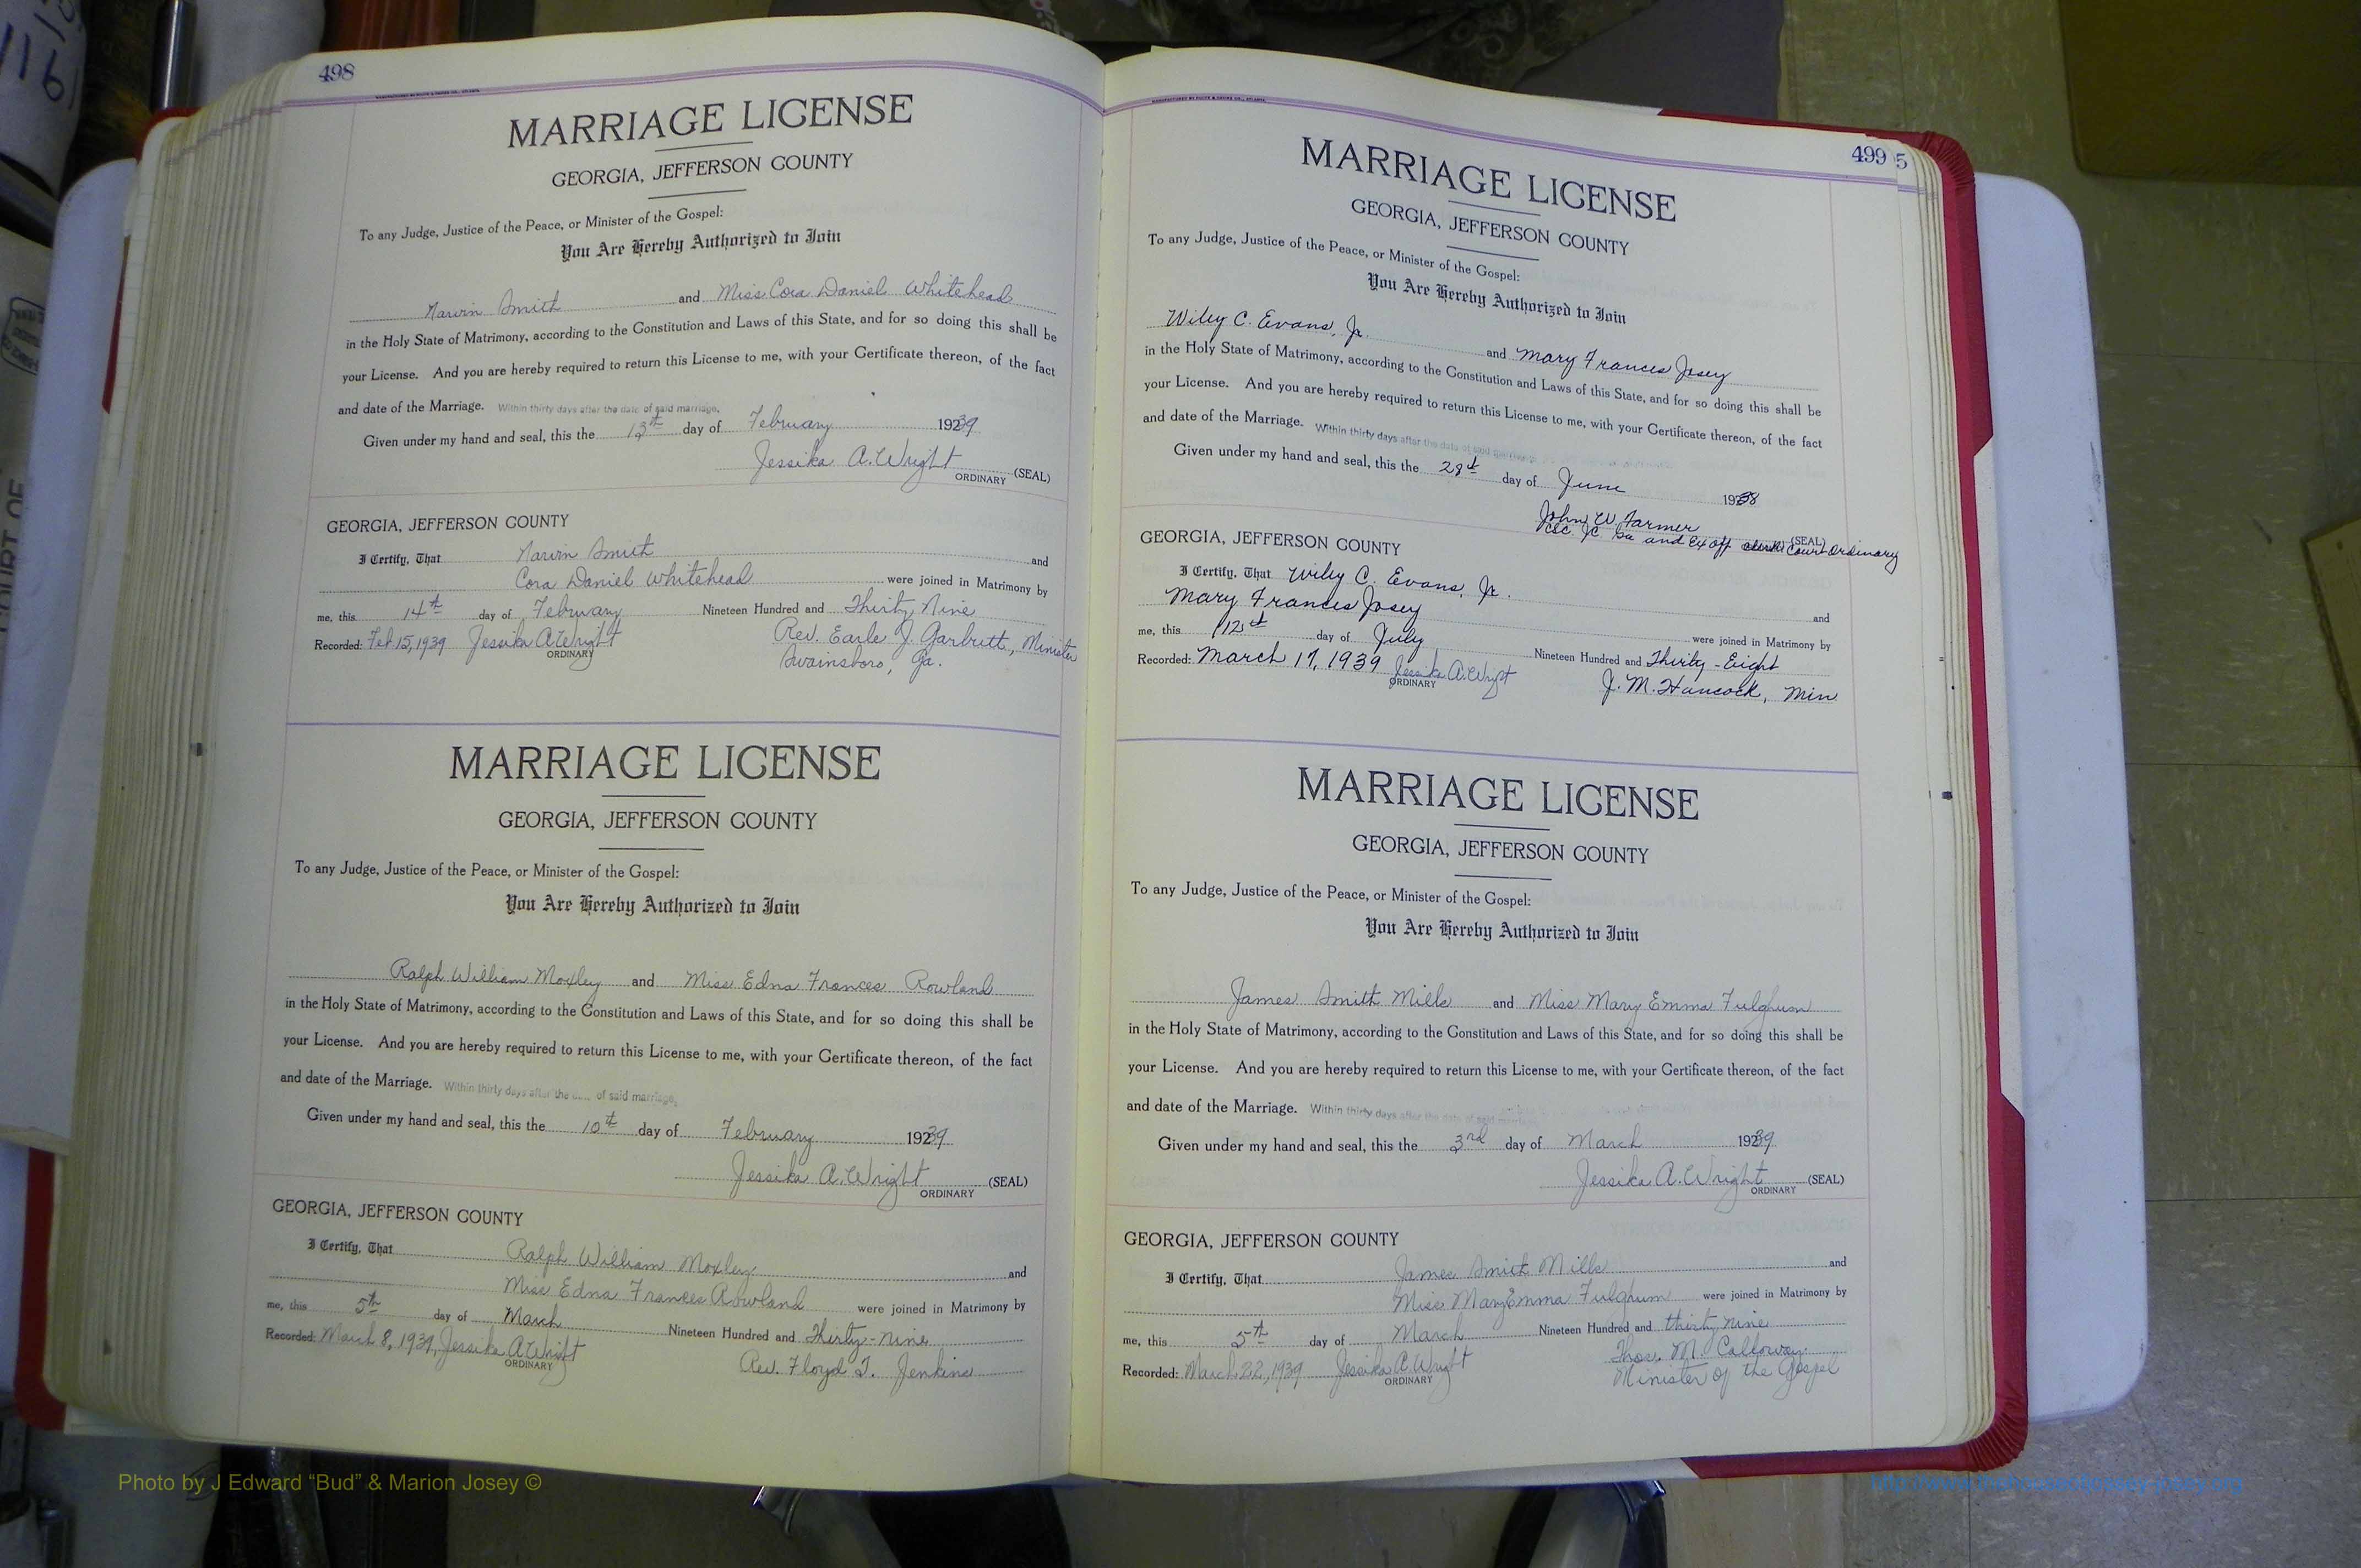 498
MARRIAGE LICENSE
GEORGIA, JEFFERSON COUNTY
To any Judge, Justice of the Peace, or Minister of the Gospel:
You Are Hereby Authorized to Join
Marvin Smith and Miss Cora Daniel Whitehead
in the Holy State of Matrimony, according to the Constitution and Laws of this State, and for so doing this shall be
your License. And you are hereby required to return this License to me, with your Certificate thereon, of the fact
and date of the Marriage. Within thirty days after the date of said marriage,
Given under my hand and seal, this the 13th day of February 1939
Jessika A. Wright (SEAL)
ORDINARY
GEORGIA, JEFFERSON COUNTY
I Certify, That Marvin Smith and
Cora Daniel Whitehead were joined in Matrimony by
me, this 14th day of February Nineteen Hundred and Thirty Nine
Recorded: Feb. 15, 1939 Jessika A. Wright Rev. Earle J. Garbutt, Minister
ORDINARY Swainsboro, Ga.
MARRIAGE LICENSE
GEORGIA, JEFFERSON COUNTY
To any Judge, Justice of the Peace, or Minister of the Gospel:
You Are Hereby Authorized to Join
Ralph William Moxley and Miss Edna Frances Rowland
in the Holy State of Matrimony, according to the Constitution and Laws of this State, and for so doing this shall be
your License. And you are hereby required to return this License to me, with your Certificate thereon, of the fact
and date of the Marriage. Within thirty days after the date of said marriage,
Given under my hand and seal, this the 10th day of February 1939
Jessika A. Wright (SEAL)
ORDINARY
GEORGIA, JEFFERSON COUNTY
I Certify, That Ralph William Moxley and
Miss Edna Frances Rowland were joined in Matrimony by
me, this 5th day of March Nineteen Hundred and Thirty-nine
Recorded: March 8, 1939, Jessika A. Wright Rev. Floyd T. Jenkins
ORDINARY
499 5
MARRIAGE LICENSE
GEORGIA, JEFFERSON COUNTY
To any Judge, Justice of the Peace, or Minister of the Gospel:
You Are Hereby Authorized to Join
Wiley C. Evans, Jr. and Mary Frances Josey
in the Holy State of Matrimony, according to the Constitution and Laws of this State, and for so doing this shall be
your License. And you are hereby required to return this License to me, with your Certificate thereon, of the fact
and date of the Marriage. Within thirty days after the date of said marriage,
Given under my hand and seal, this the 28th day of June 1938
John W Farmer (SEAL)
CSC. JC. Ga and Ex off Court Ordinary
GEORGIA, JEFFERSON COUNTY
I Certify, That Wiley C. Evans, Jr. and
Mary Frances Josey were joined in Matrimony by
me, this 12th day of July Nineteen Hundred and Thirty-Eight
Recorded: March 17, 1939 Jessika A. Wright J. M. Hancock, Min
ORDINARY
MARRIAGE LICENSE
GEORGIA, JEFFERSON COUNTY
To any Judge, Justice of the Peace, or Minister of the Gospel:
You Are Hereby Authorized to Join
James Smith Mills and Miss Mary Emma Fulghum
in the Holy State of Matrimony, according to the Constitution and Laws of this State, and for so doing this shall be
your License. And you are hereby required to return this License to me, with your Certificate thereon, of the fact
and date of the Marriage. Within thirty days after the date of said marriage,
Given under my hand and seal, this the 3rd day of March 1939
Jessika A. Wright (SEAL)
ORDINARY
GEORGIA, JEFFERSON COUNTY
I Certify, That James Smith Mills and
Miss Mary Emma Fulghum were joined in Matrimony by
me, this 5th day of March Nineteen Hundred and thirty nine
Recorded: March 22, 1939 Jessika A. Wright Thos. M. Calloway
ORDINARY Minister of the Gospel
Photo by J Edward “Bud” & Marion Josey ©
http://www.thehouseofjessey-josey.org